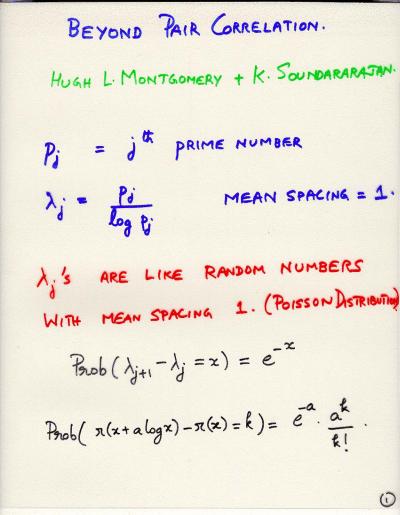 BEYOND PAIR CORRELATION.
HUGH L. MONTGOMERY + K. SOUNDARARAJAN.
p_j = j^th PRIME NUMBER
λ_j = p_j / log p_j MEAN SPACING = 1.
λ_j's ARE LIKE RANDOM NUMBERS
WITH MEAN SPACING 1. (POISSON DISTRIBUTION)
Prob(λ_{j+1} - λ_j = x) = e^{-x}
Prob(π(x + a log x) - π(x) = k) = e^{-a} · a^k / k! .
1